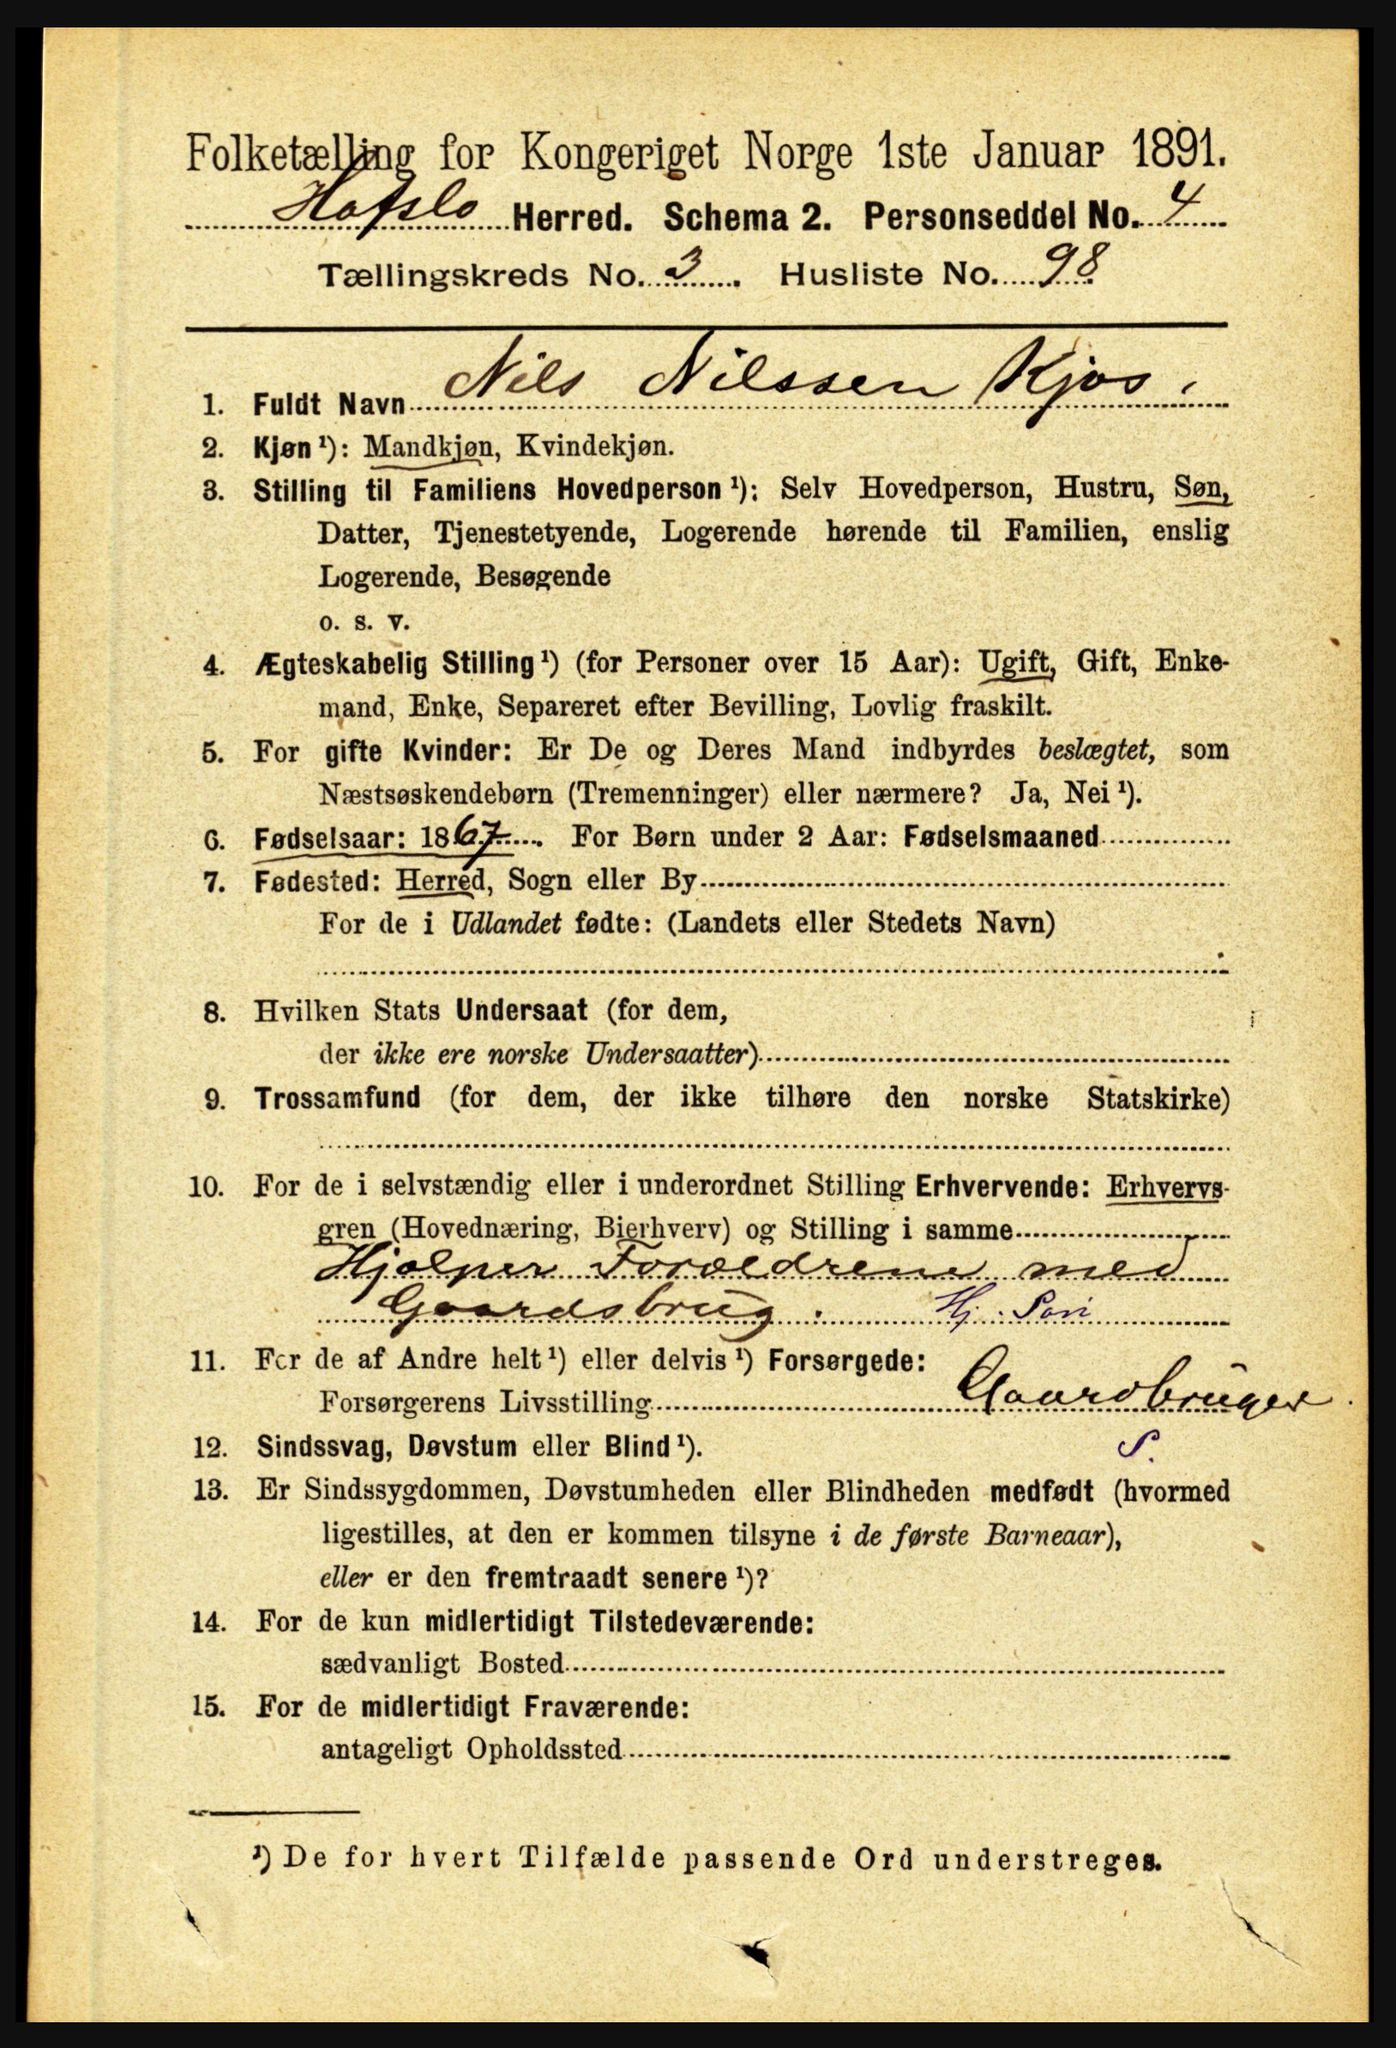 Folketælling for Kongeriget Norge 1ste Januar 1891.
Hafslo Herred. Schema 2. Personseddel No. 4
Tællingskreds No. 3. Husliste No. 98
1. Fuldt Navn Nils Nilssen Kjos.
2. Kjøn ¹): Mandkjøn, Kvindekjøn.
3. Stilling til Familiens Hovedperson ¹): Selv Hovedperson, Hustru, Søn,
Datter, Tjenestetyende, Logerende hørende til Familien, enslig
Logerende, Besøgende
o. s. v.
4. Ægteskabelig Stilling ¹) (for Personer over 15 Aar): Ugift, Gift, Enke-
mand, Enke, Separeret efter Bevilling, Lovlig fraskilt.
5. For gifte Kvinder: Er De og Deres Mand indbyrdes beslægtet, som
Næstsøskendebørn (Tremenninger) eller nærmere? Ja, Nei ¹).
6. Fødselsaar: 1867. For Børn under 2 Aar: Fødselsmaaned
7. Fødested: Herred, Sogn eller By
For de i Udlandet fødte: (Landets eller Stedets Navn)
8. Hvilken Stats Undersaat (for dem,
der ikke ere norske Undersaatter)
9. Trossamfund (for dem, der ikke tilhøre den norske Statskirke)
10. For de i selvstændig eller i underordnet Stilling Erhvervende: Erhvervs-
gren (Hovednæring, Bierhverv) og Stilling i samme
Hjælper Forældrene med
Gaardsbrug. Hj. Søn
11. For de af Andre helt ¹) eller delvis ¹) Forsørgede:
Forsørgerens Livsstilling Gaardbruger.
12. Sindssvag, Døvstum eller Blind ¹). S.
13. Er Sindssygdommen, Døvstumheden eller Blindheden medfødt (hvormed
ligestilles, at den er kommen tilsyne i de første Barneaar),
eller er den fremtraadt senere ¹)?
14. For de kun midlertidigt Tilstedeværende:
sædvanligt Bosted
15. For de midlertidigt Fraværende:
antageligt Opholdssted
¹) De for hvert Tilfælde passende Ord understreges.